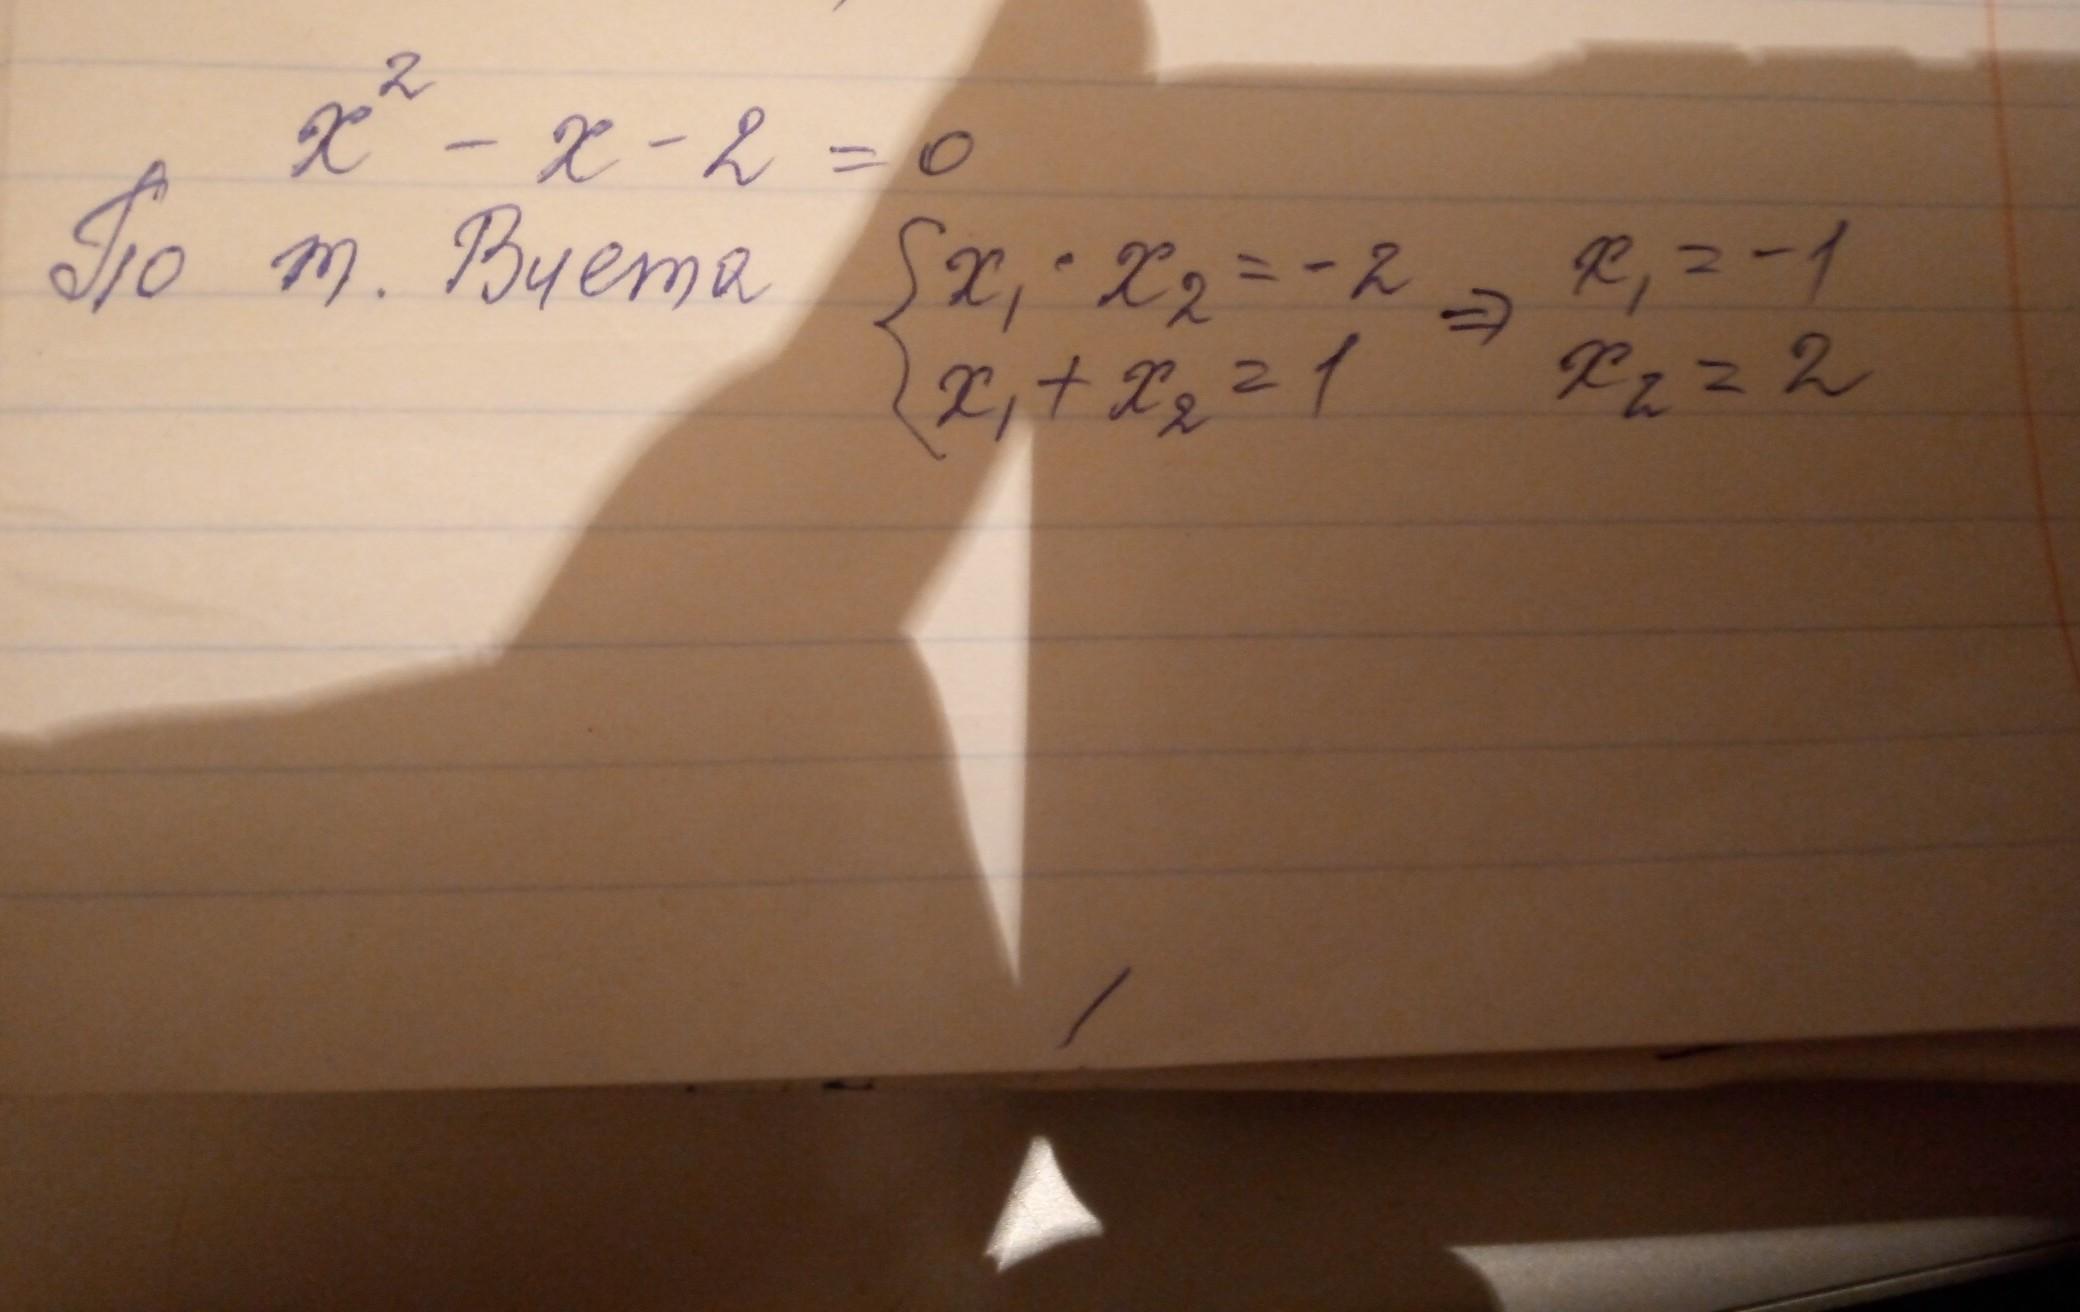 x² - x - 2 = 0
По т. Виета { x₁ · x₂ = -2 ⇒ x₁ = -1
x₁ + x₂ = 1 x₂ = 2